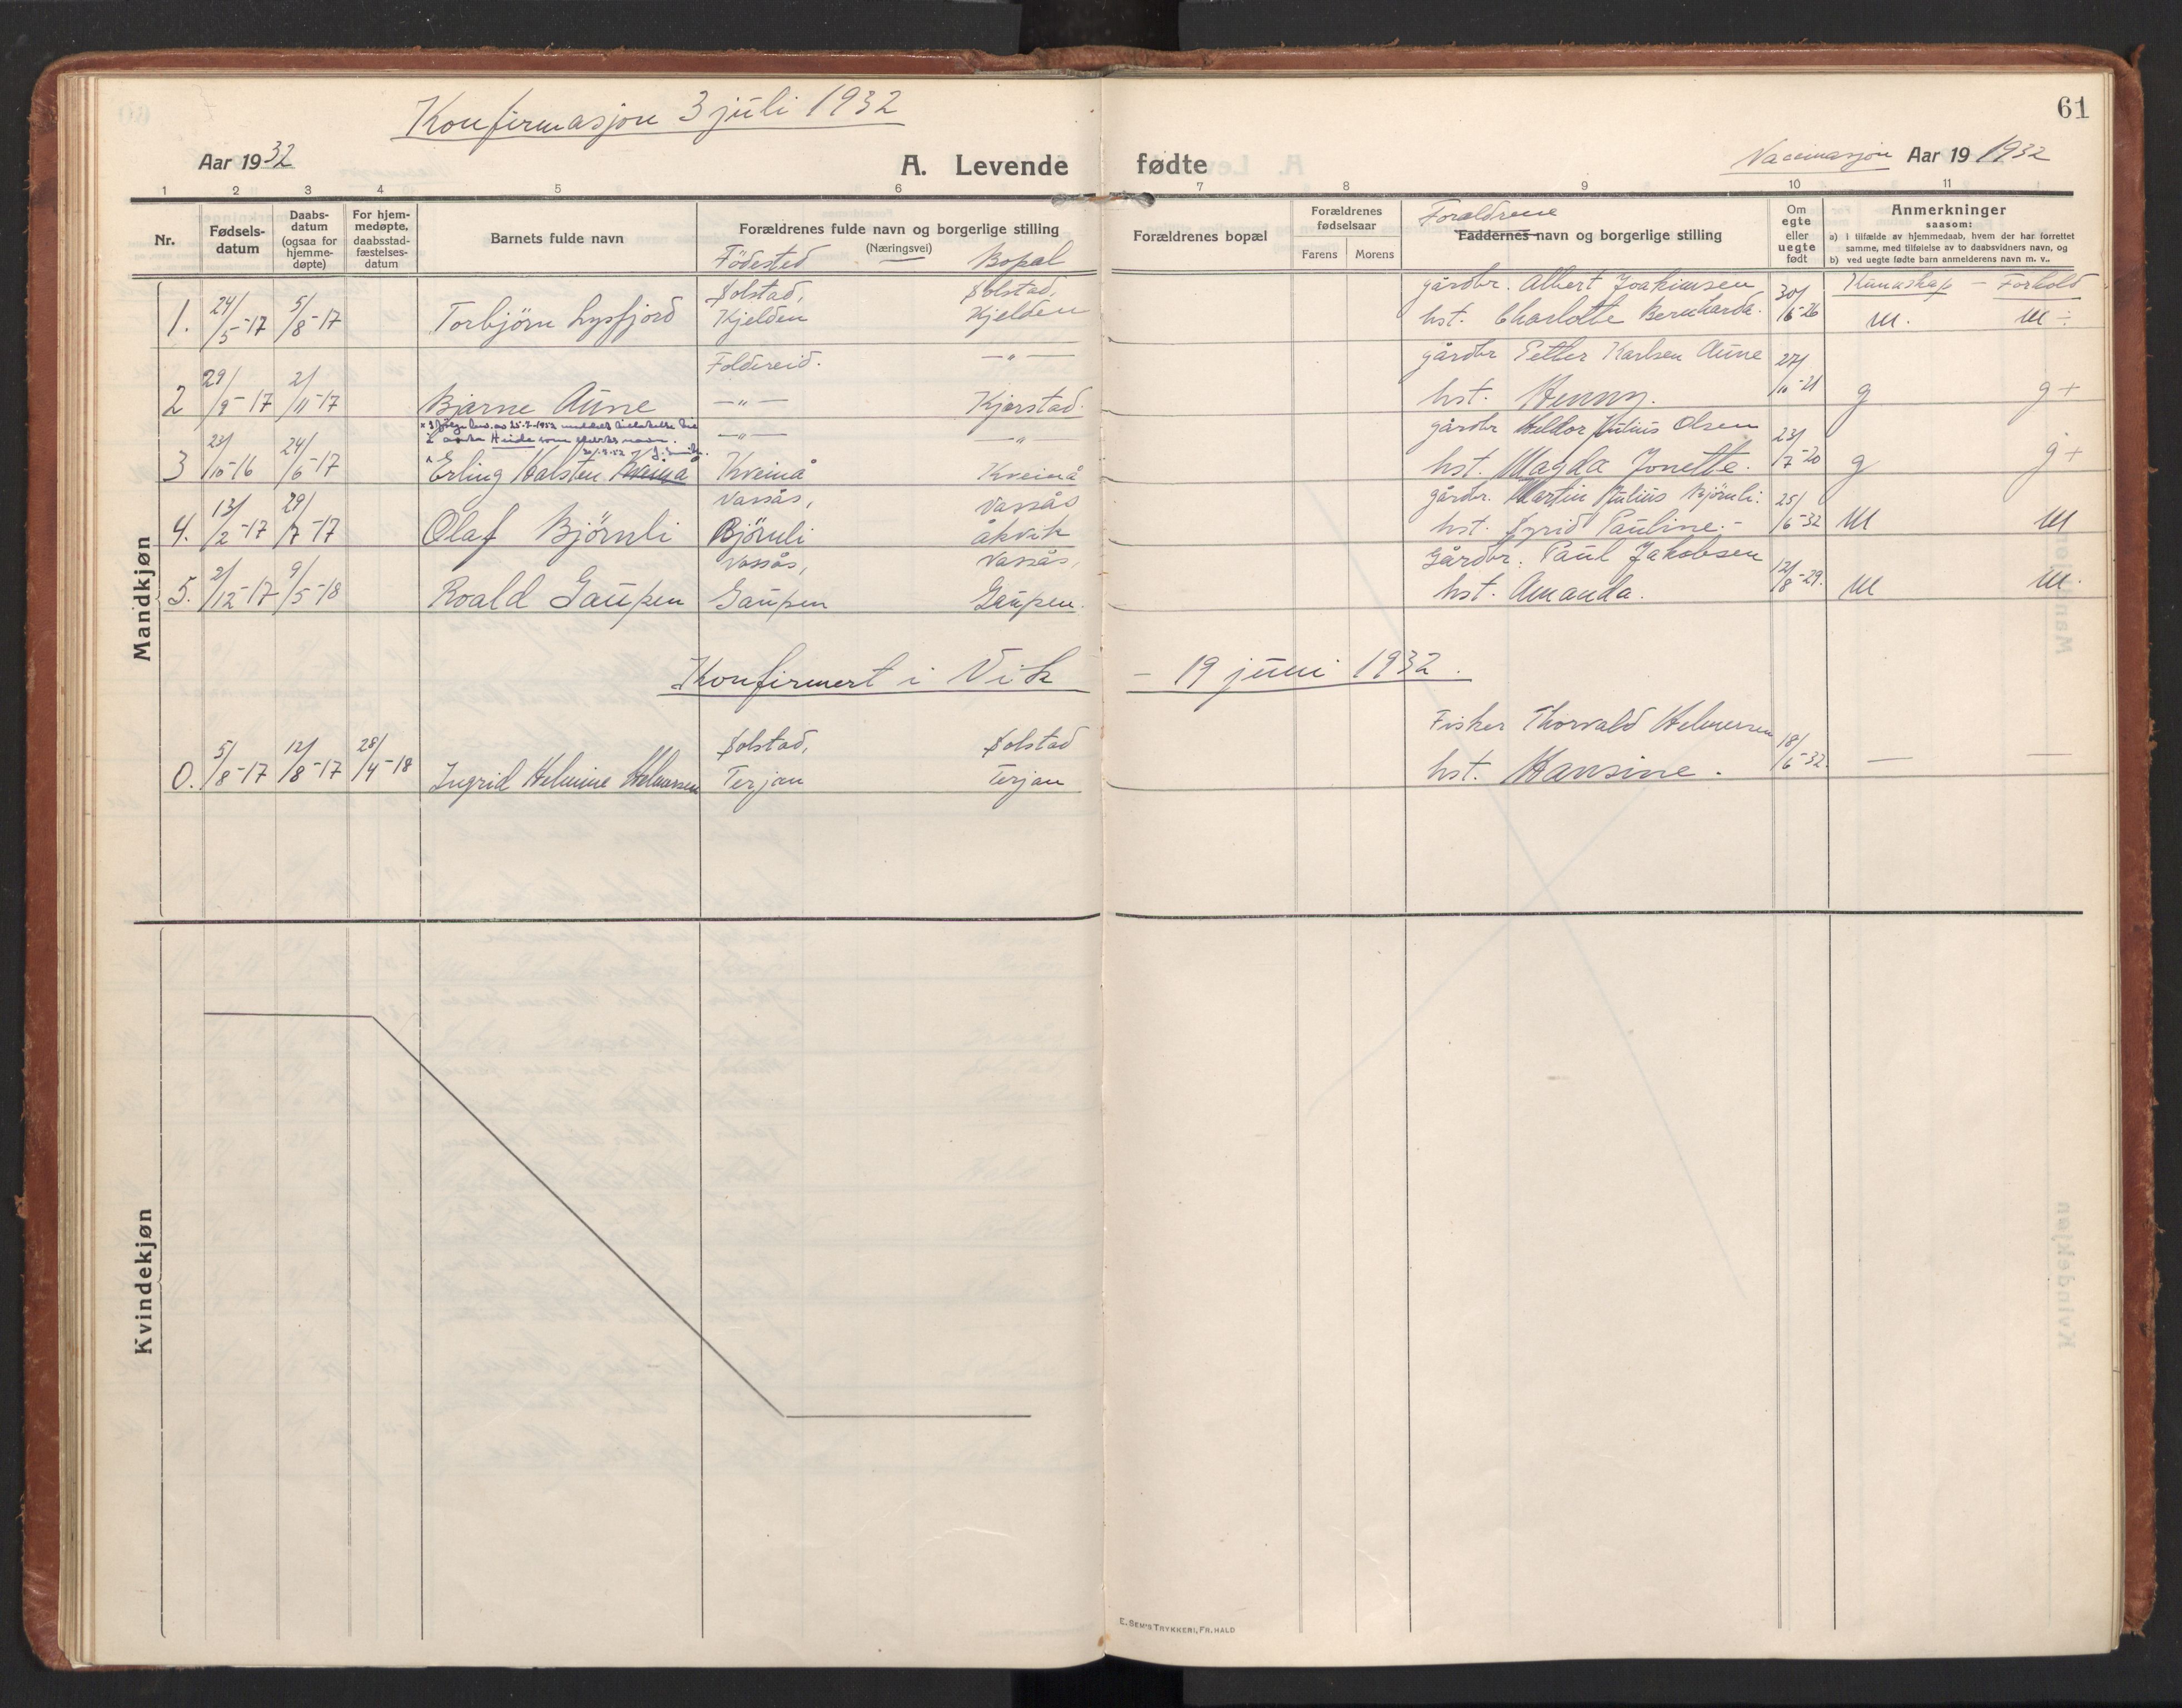 Konfirmasjon 3 juli 1932
61
Aar 1932
A. Levende fødte
Vaccinasjon Aar 19 1932
1 2 3 4 5 6 7 8 9 10 11
Nr.
Fødsels-
datum
Daabs-
datum
(ogsaa for
hjemme-
døpte)
For hjem-
medøpte,
daabsstad-
fæstelses-
datum
Barnets fulde navn
Forældrenes fulde navn og borgerlige stilling
(Næringsvei)
Födested Bopæl
Forældrenes bopæl
Forældrenes
fødselsaar
Farens Morens
Forældrene
Faddernes navn og borgerlige stilling
Om
egte
eller
uegte
født
Anmerkninger
saasom:
a) i tilfælde av hjemmedaab, hvem der har forrettet
samme, med tilføielse av to daabsvidners navn, og
b) ved uegte fødte barn anmelderens navn m. v..
Kunnskap - Forhold
Mandkjøn
Solstad, Solstad, gårdbr. Albert Joakimsen
1. 24/5-17 5/8-17 Torbjørn Lysfjord Kjelden Kjelden hst. Charlotte Bernharda. 30/6-26 M. M ÷
Foldereid. —"— gårdbr Petter Karlsen Aune
2 29/9-17 2/11-17 Bjarne Aune —"— Kjerstad. hst. Henny. 27/10-21 g g+
x Ifölge bev. av 25-7-1952 meddelt tillatelse til
å anta Heide som slektsnavn.
—"— —"— gårdbr Heldor Julius Olsen
3 23/10-16 24/6-17 x Erling Halsten Kveinå Kveinå Kveinå hst. Magda Jonette. 23/7-20 g g+
Vassås, Vassås gårdbr. Martin Julius Bjørnli.
4. 13/2-17 29/7-17 Olaf Bjørnli Bjørnli Åkvik hst. Syrid Pauline.- 25/6-32 M M
Vassås, Vassås, Gårdbr. Paul Jakobsen
5. 2/12-17 9/5-18 Roald Gaupen Gaupen Gaupen. hst. Amanda. 12/8-29. M M.
Konfirmert i Vik - 19 juni 1932.
Solstad, Solstad Fisker Thorvald Helmersen
0. 5/8-17 12/8-17 28/4-18 Ingrid Helmine Helmersen Terjan Terjan hst. Hansine. 18/6-32. — —
Kvindekjøn
E. SEM'S TRYKKERI, FR.HALD